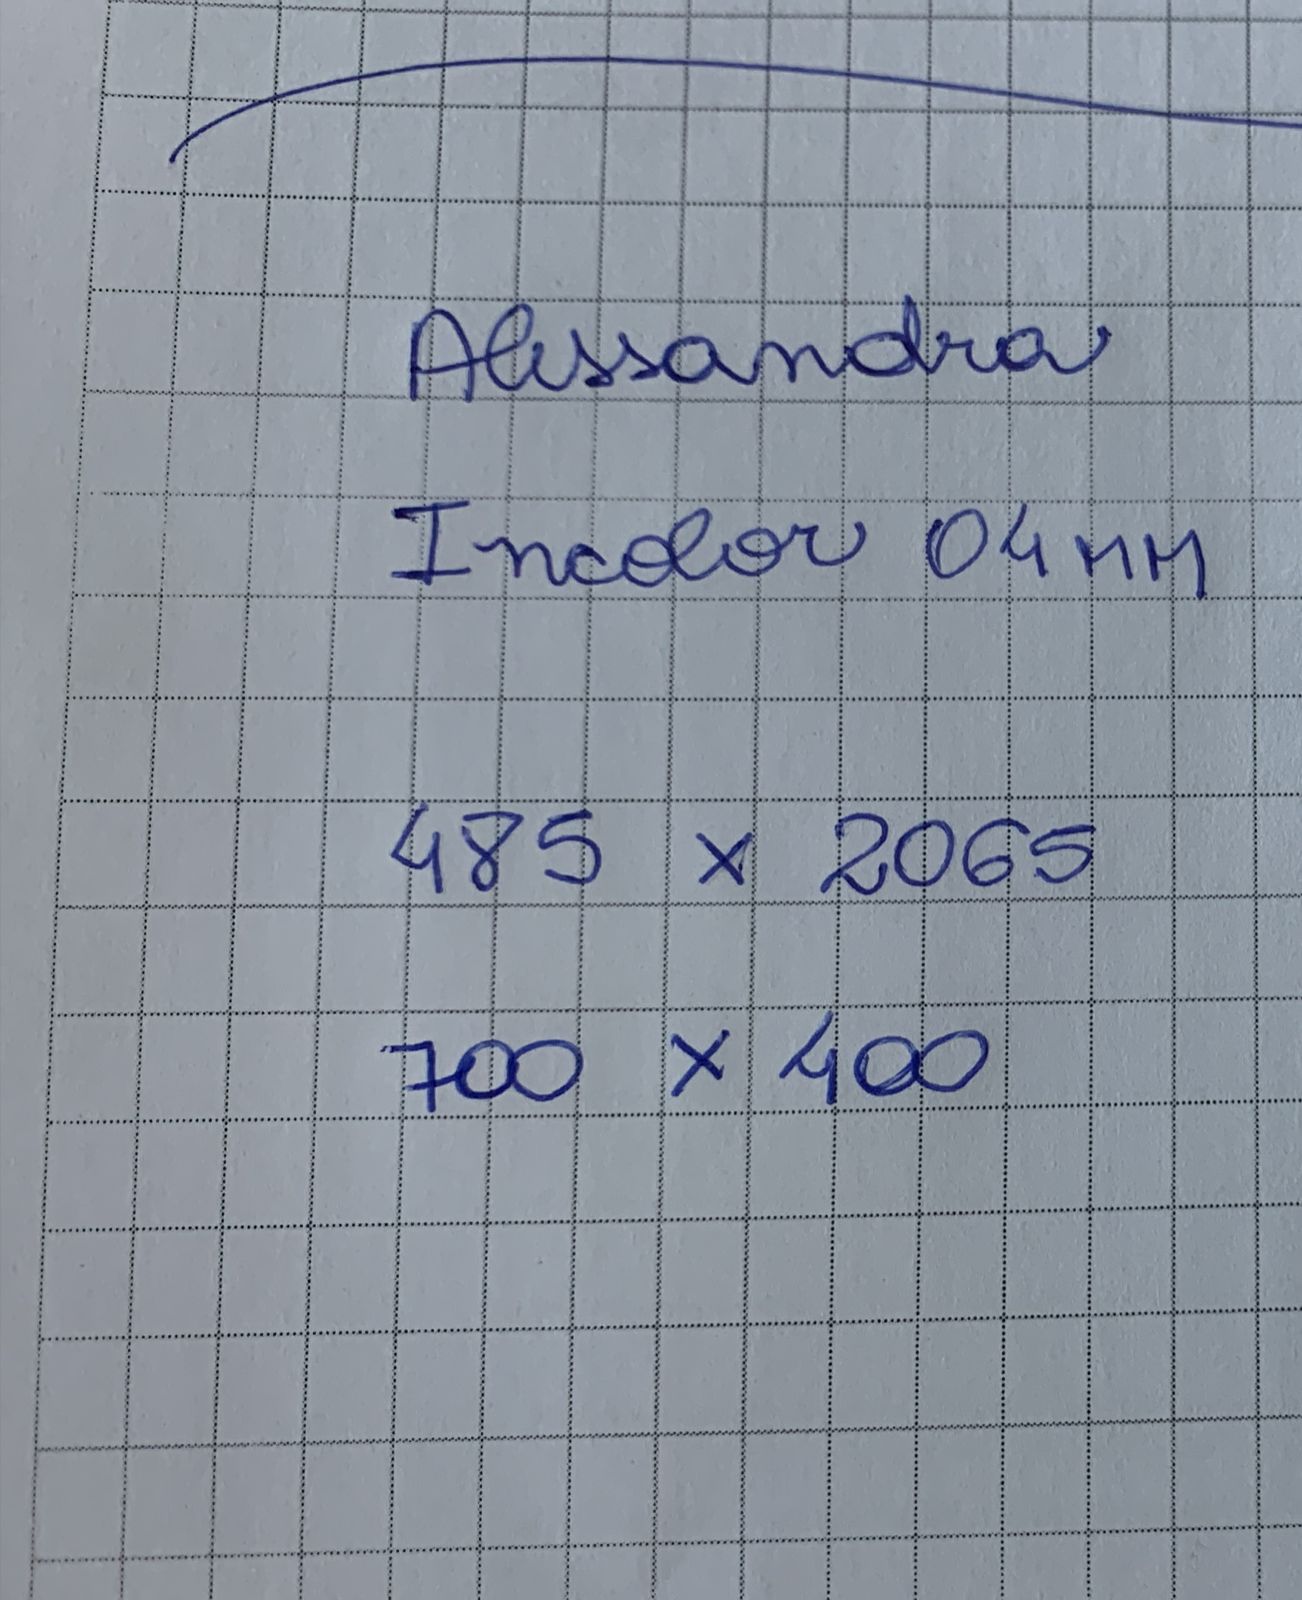 Alessandra
Incolor 04mm
485 x 2065
700 x 400